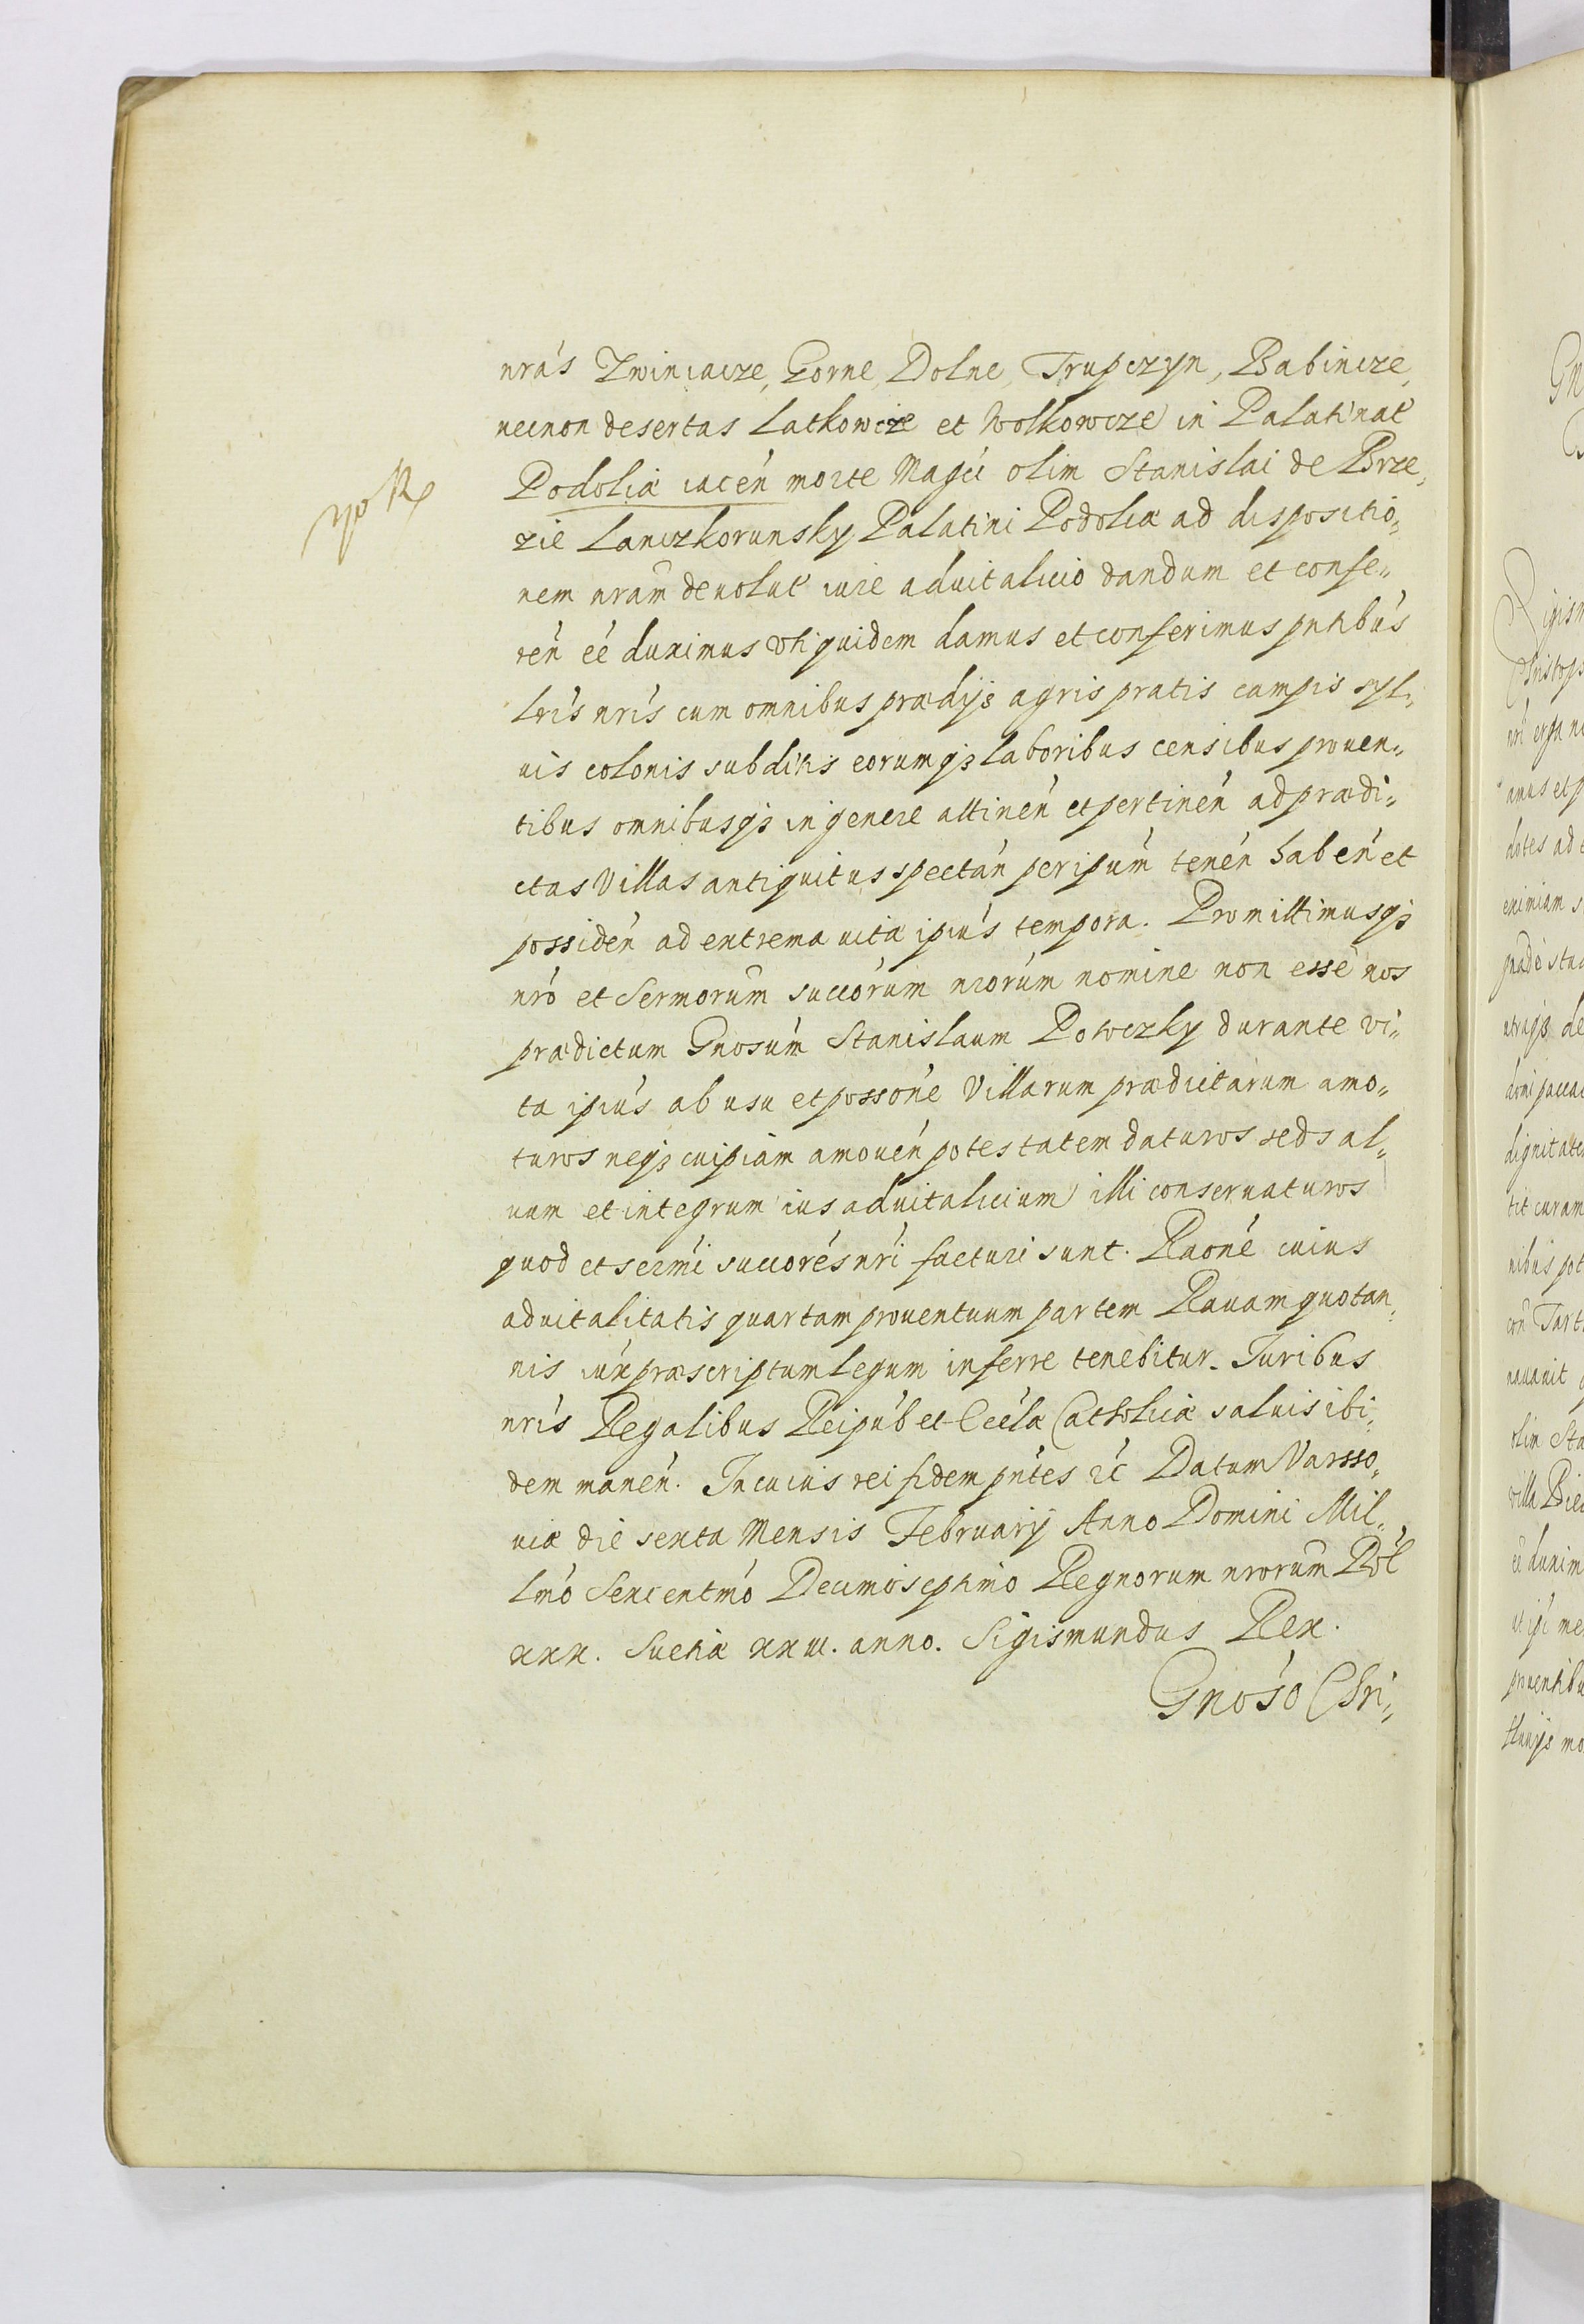 nrás Zwiniacze, Gorne, Dolne, Trupczyn, Babincze,
necnon desertas Latkowcze et Wolkowcze in Palatinat
Podoliæ iacén morte Magci olim Stanislai de Brze,
zie Lanczkorunsky Palatini Podoliæ ad dispositio,
nem nram deuolut iure aduitalicio dandum et confe,,
rén éé duximus vti quidem damus et conferimus pntibus
Lris nris cum omnibus prædijs agris pratis campis syl,
uis colonis subditis eorumq3 laboribus censibus prouen,,
tibus omnibusq3 in genere attinén et pertinén ad prædi,,
ctas Villas antiquitus spectán per ipúm tenén habén et
possidén ad extrema uitæ ipiús tempora. Promittimusq3
nró et Sermorum succórum nrorúm nomine non esse nos
prædictum Gnosúm Stanislaum Powczky durante vi,,
ta ipiús ab usu et possoné Villarum prædictarum amo,,
turos neq3 cuipiam amouén potestatem daturos sed sal,,
uum et integrum ius aduitalicium illi conseruaturos
quod et sermi succorés nri facturi sunt. Raoné cuius
aduitalitatis quartam prouentuum partem Rauam quotan,
nis iux præscriptum legum inferre tenebitur. Iuribus
nris Regalibus Reipúb et Ecclæ Catholicæ saluis ibi,
dem manén. In cuius rei fidem pntes &c Datum Varsso,
uiæ die sexta Mensis February Anno Domini Mil,
Lmó Sexcentmó Decimoseptimo Regnorum nrorum Pol
xxx. Suetiæ xxiii. anno. Sigismundus Rex.
Gnóso Chri,